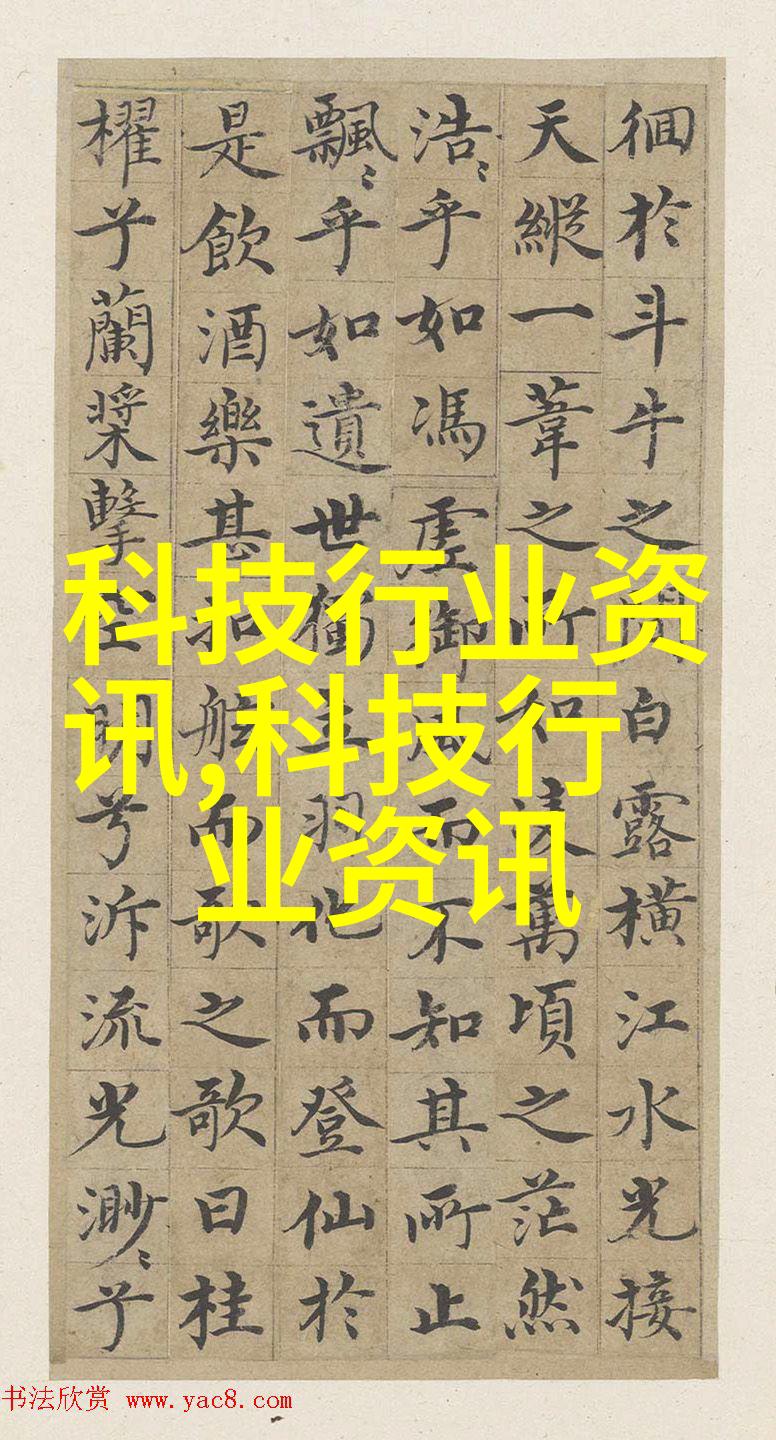 徊於斗牛之間白露橫江水光接
天縱一葦之所如淩萬頃之茫然
浩〻乎如馮虛御風而不知其所止
飄〻乎如遺世獨立羽化而登仙於
是飲酒樂甚扣舷而歌之歌曰桂
櫂兮蘭槳擊空明兮泝流光渺〻兮
科技行业资
讯,科技行
业资讯
书法欣赏 www.yac8.com